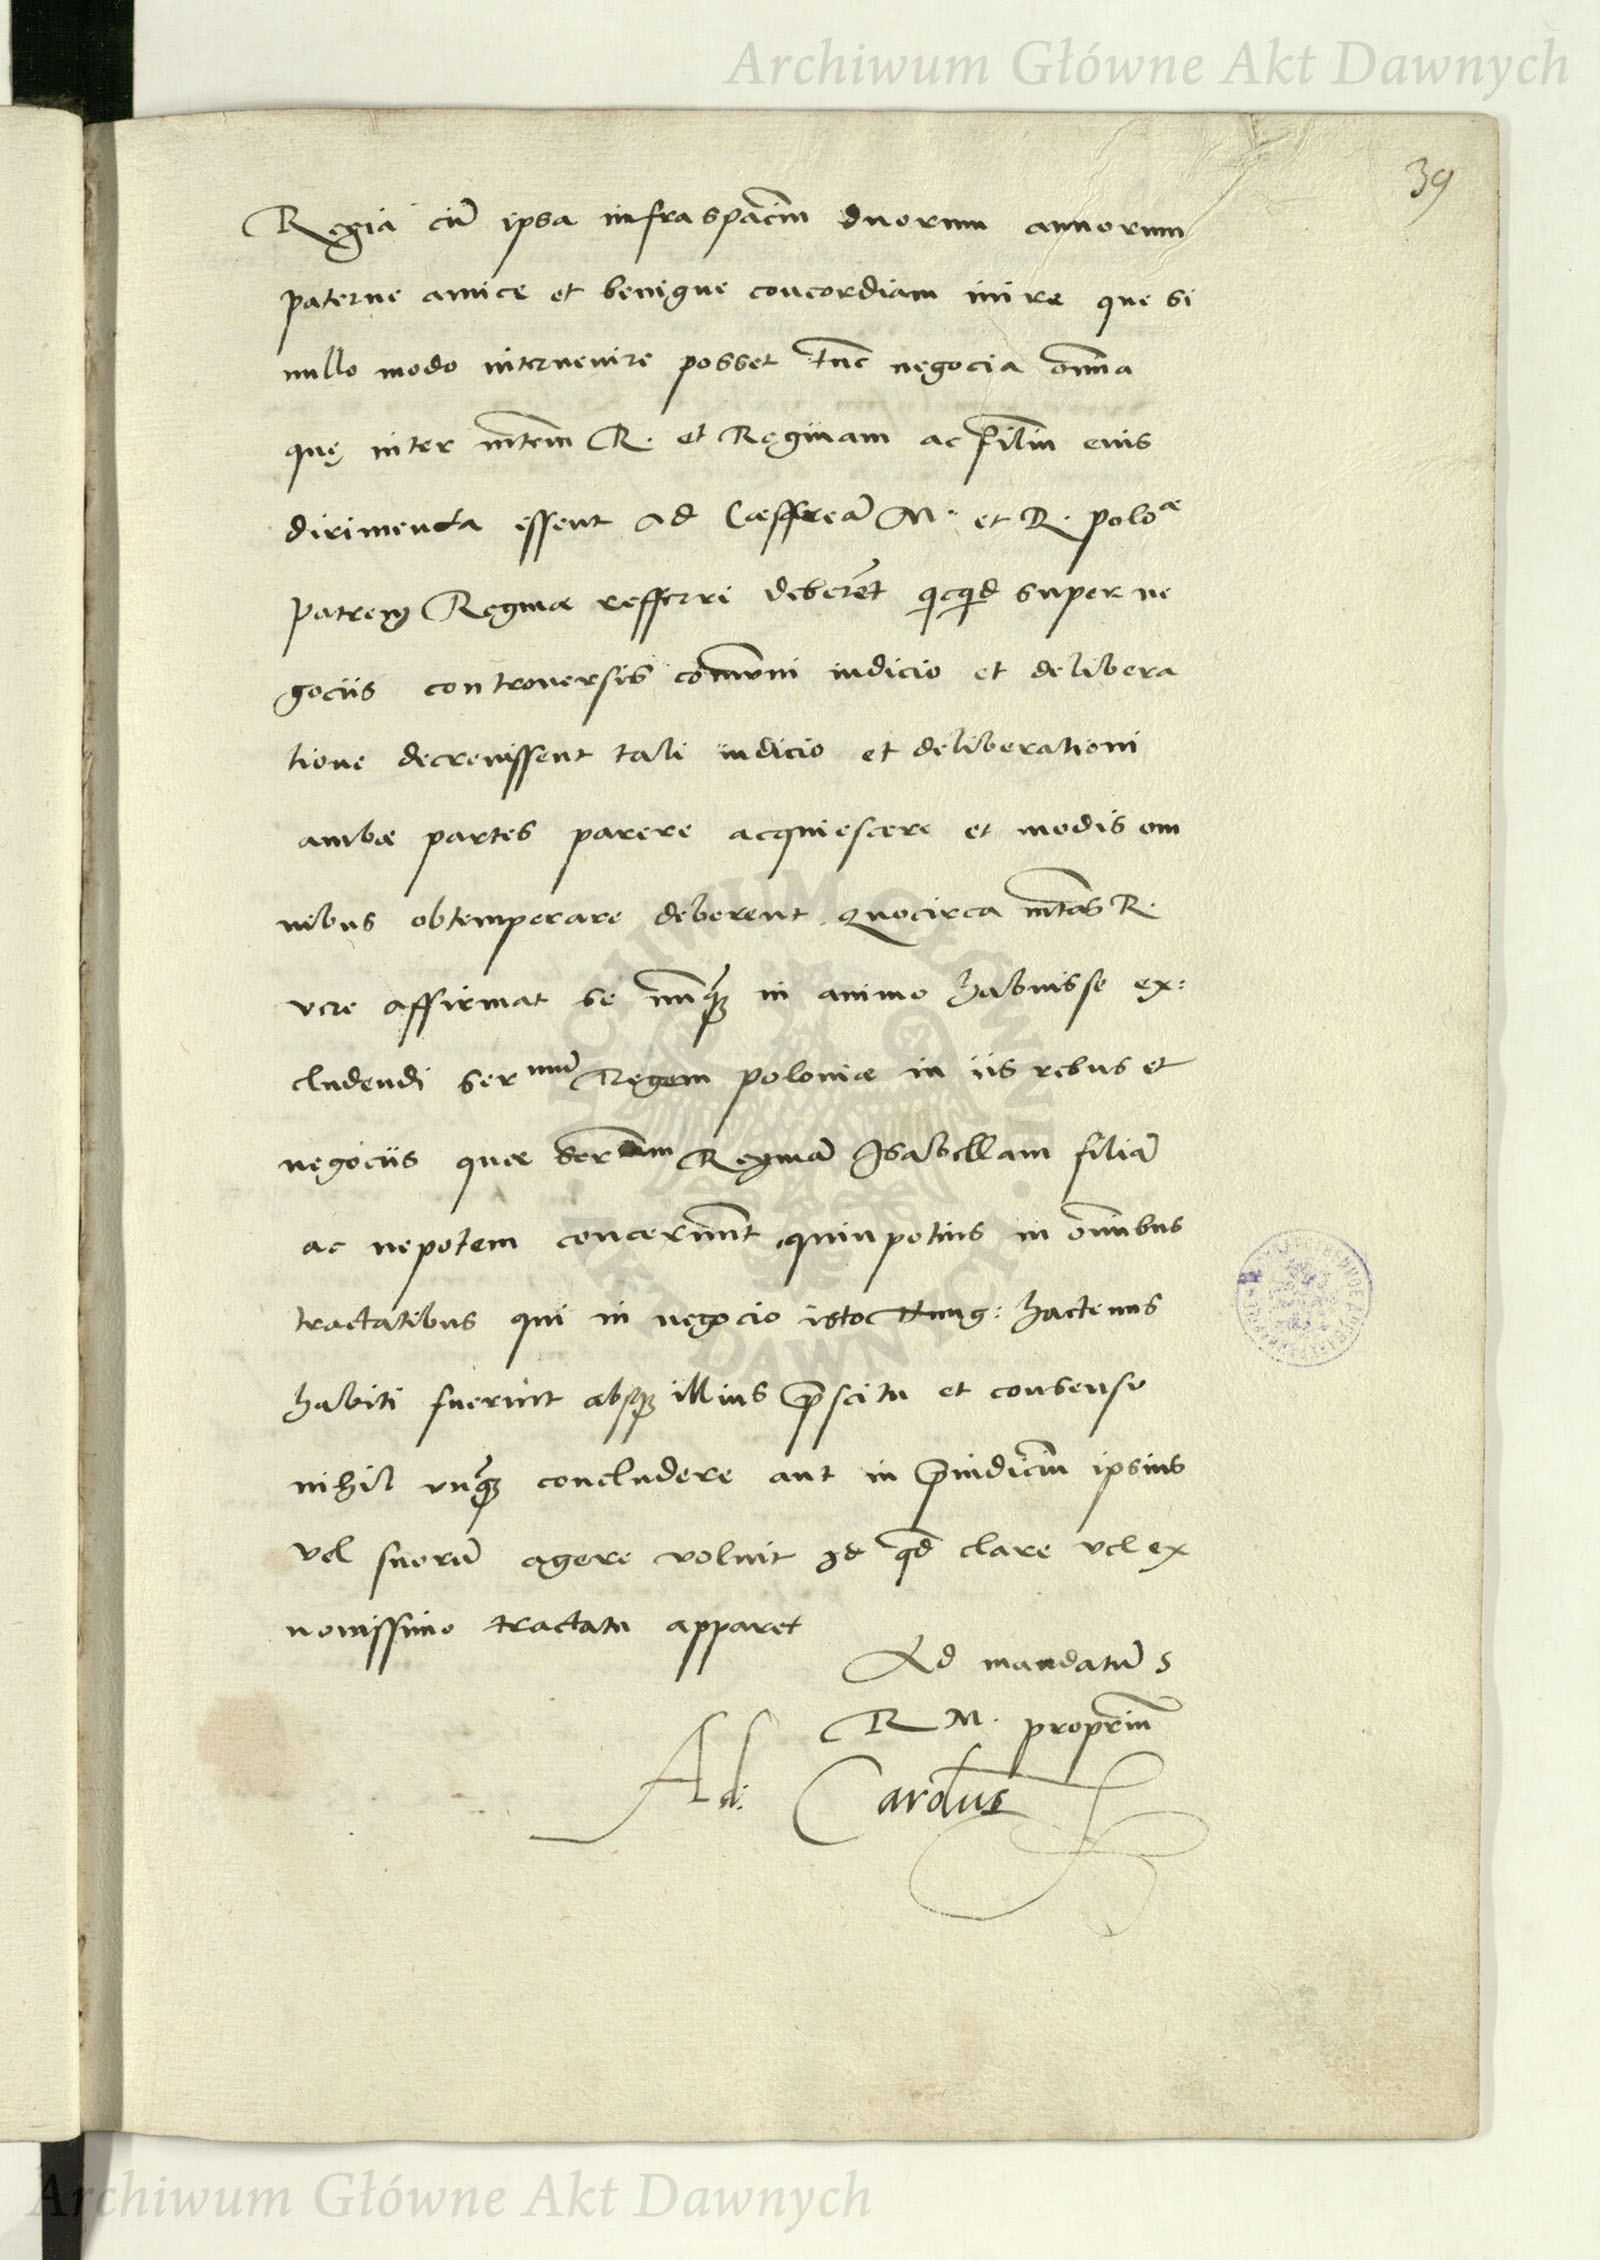 Archiwum Główne Akt Dawnych
39
Regia cũ ipsa infra spaciũ duorum annorum
paterne amice et benigne concordiam inire que si
nullo modo intervenire posset tũc negocia om̃ia
quę inter mtem R. et Reginam ac filiũ eius
dirimenda essent ad Cæsſream M. et R. poloæ
patrem Reginæ refferri deberẽt qicqid super ne
gociis controversis com̃uni iudicio et delibera
tione decrevissent tali iudicio et deliberationi
ambæ partes parere acquiescere et modis om
nibus obtemperare deberent Quocirca mtas R.
vere affirmat se nunq̃ in animo habuisse ex:
cludendi sermũ Regem poloniæ in iis rebus et
negociis quæ Seram Reginã Isabellam filiã
ac nepotem concernũt quinpotius in om̃ibus
tractatibus qui in negocio isto Hung: hactenus
habiti fuerint absq illius p̃scitu et consensu
nihil unq̃ concludere aut in p̃iudiciũ ipsius
vel suorũ agere voluit Id qd̃ clare vel ex
novissimo tractatu apparet
Ad mandatũ S
R M. propriũ
Ad. Carolus
ARCHIWUM GŁÓWNE AKT DAWNYCH
Archiwum Główne Akt Dawnych